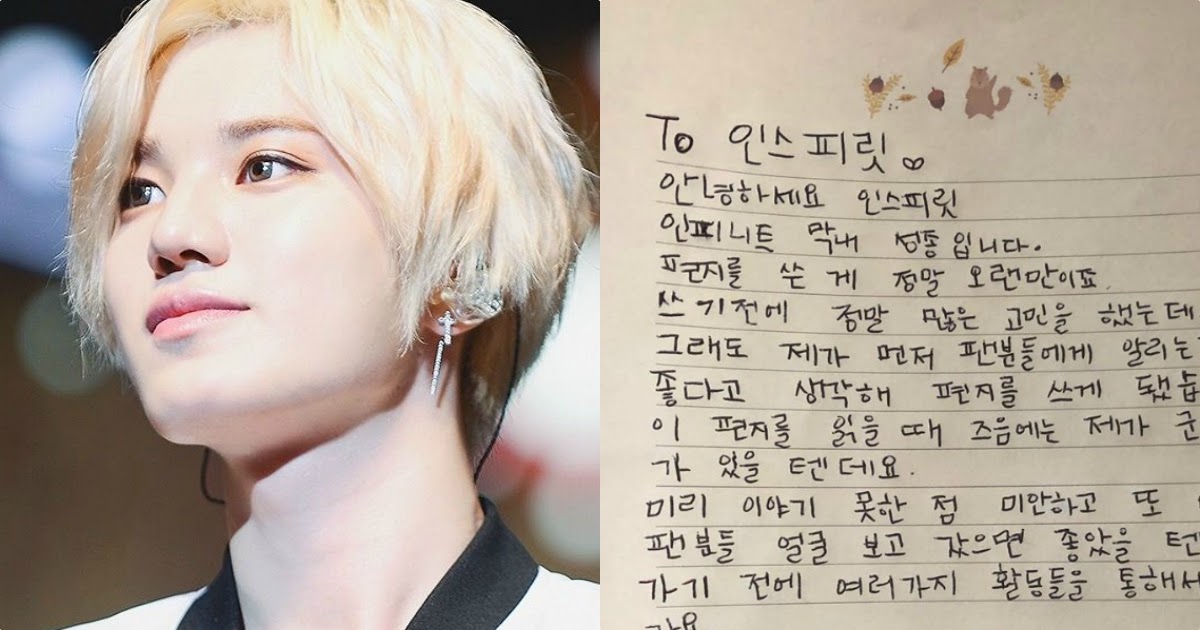 To 인스피릿♡
안녕하세요 인스피릿
인피니트 막내 성종입니다.
편지를 쓴 게 정말 오랜만이죠.
쓰기전에 정말 많은 고민을 했는데
그래도 제가 먼저 팬분들에게 알리는
좋다고 생각해 편지를 쓰게 됐습
이 편지를 읽을 때 즈음에는 제가 군
가 있을 텐데요.
미리 이야기 못한 점 미안하고 또
팬분들 얼굴 보고 갔으면 좋았을 텐
가기 전에 여러가지 활동들을 통해서